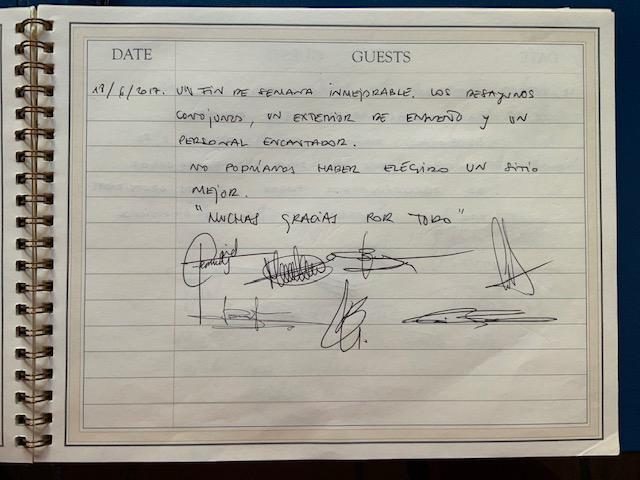 DATE GUESTS
18/6/2017. UN FIN DE SEMANA INMEJORABLE. LOS DESAYUNOS
CONJUNTOS, UN EXTERIOR DE ENSUEÑO Y UN
PERSONAL ENCANTADOR.
NO PODRÍAMOS HABER ELEGIDO UN SITIO
MEJOR.
"MUCHAS GRACIAS POR TODO"